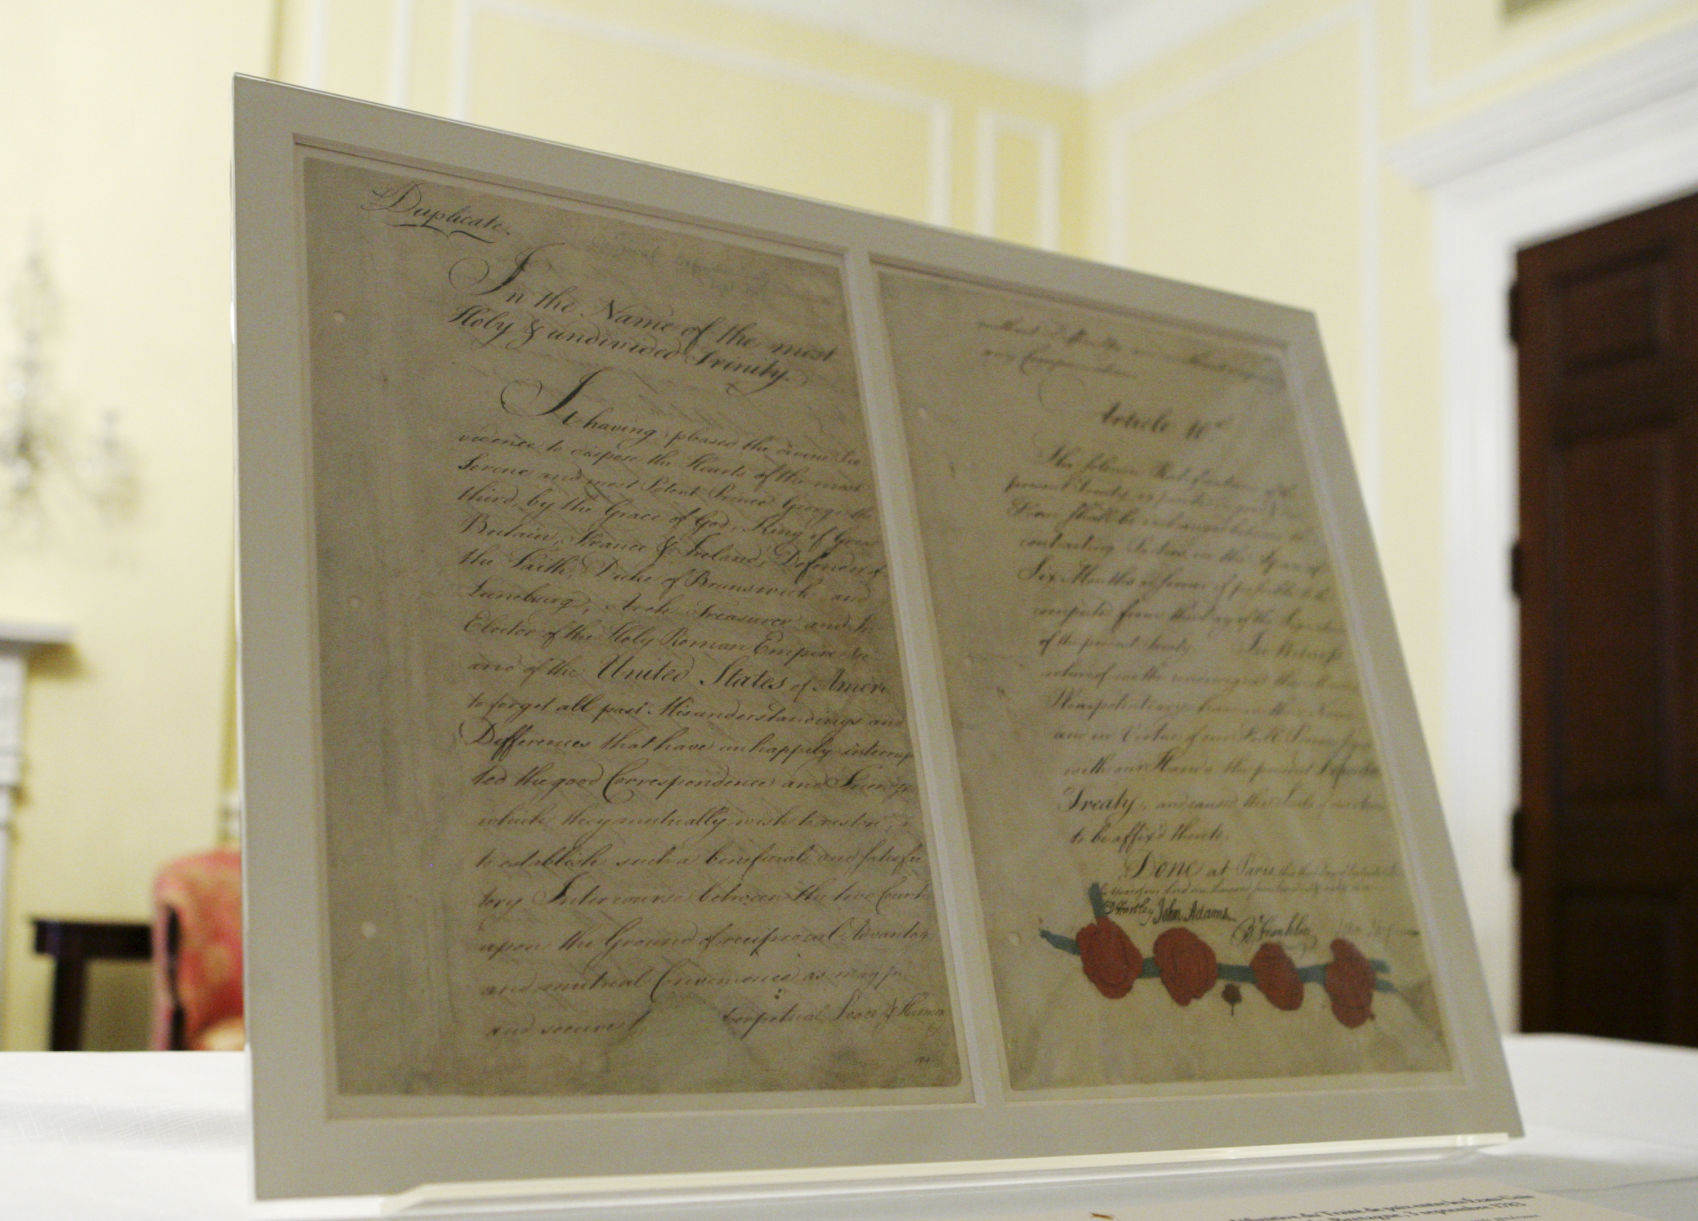 Duplicate.
In the Name of the most
Holy & undivided Trinity.
It having pleased the divine Pro
vidence to dispose the Hearts of the most
Serene and most Potent Prince George the
third, by the Grace of God, King of Great
Britain, France & Ireland, Defender of
the Faith, Duke of Brunswick and
Lunebourg, Arch Treasurer and
Elector of the Holy Roman Empire &c
and of the United States of Ameri
to forget all past Misunderstandings and
Differences that have unhappily interrup
ted the good Correspondence and Friendship
which they mutually wish to restore;
to establish such a beneficial and satisfac
tory Intercourse between the two Countr
upon the Ground of reciprocal Advantag
and mutual Convenience as may
and secure
perpetual Peace & Harmon
without Difficulty and without
any Compensation.
Article 10th
The solemn Ratifications of the
present Treaty in good &
Form shall be exchanged between the
contracting Parties in the Space of
Six Months or sooner if possible to be
computed from the Day of the Signature
of the present Treaty. In Witness
whereof we the undersigned their
Plenipotentiary have in their Name
and in Virtue of our Full Powers
with our Hands the present Definitive
Treaty, and caused the Seals of our Arms
to be affix'd thereto.
Done at Paris
D Hartley John Adams B Franklin John Jay